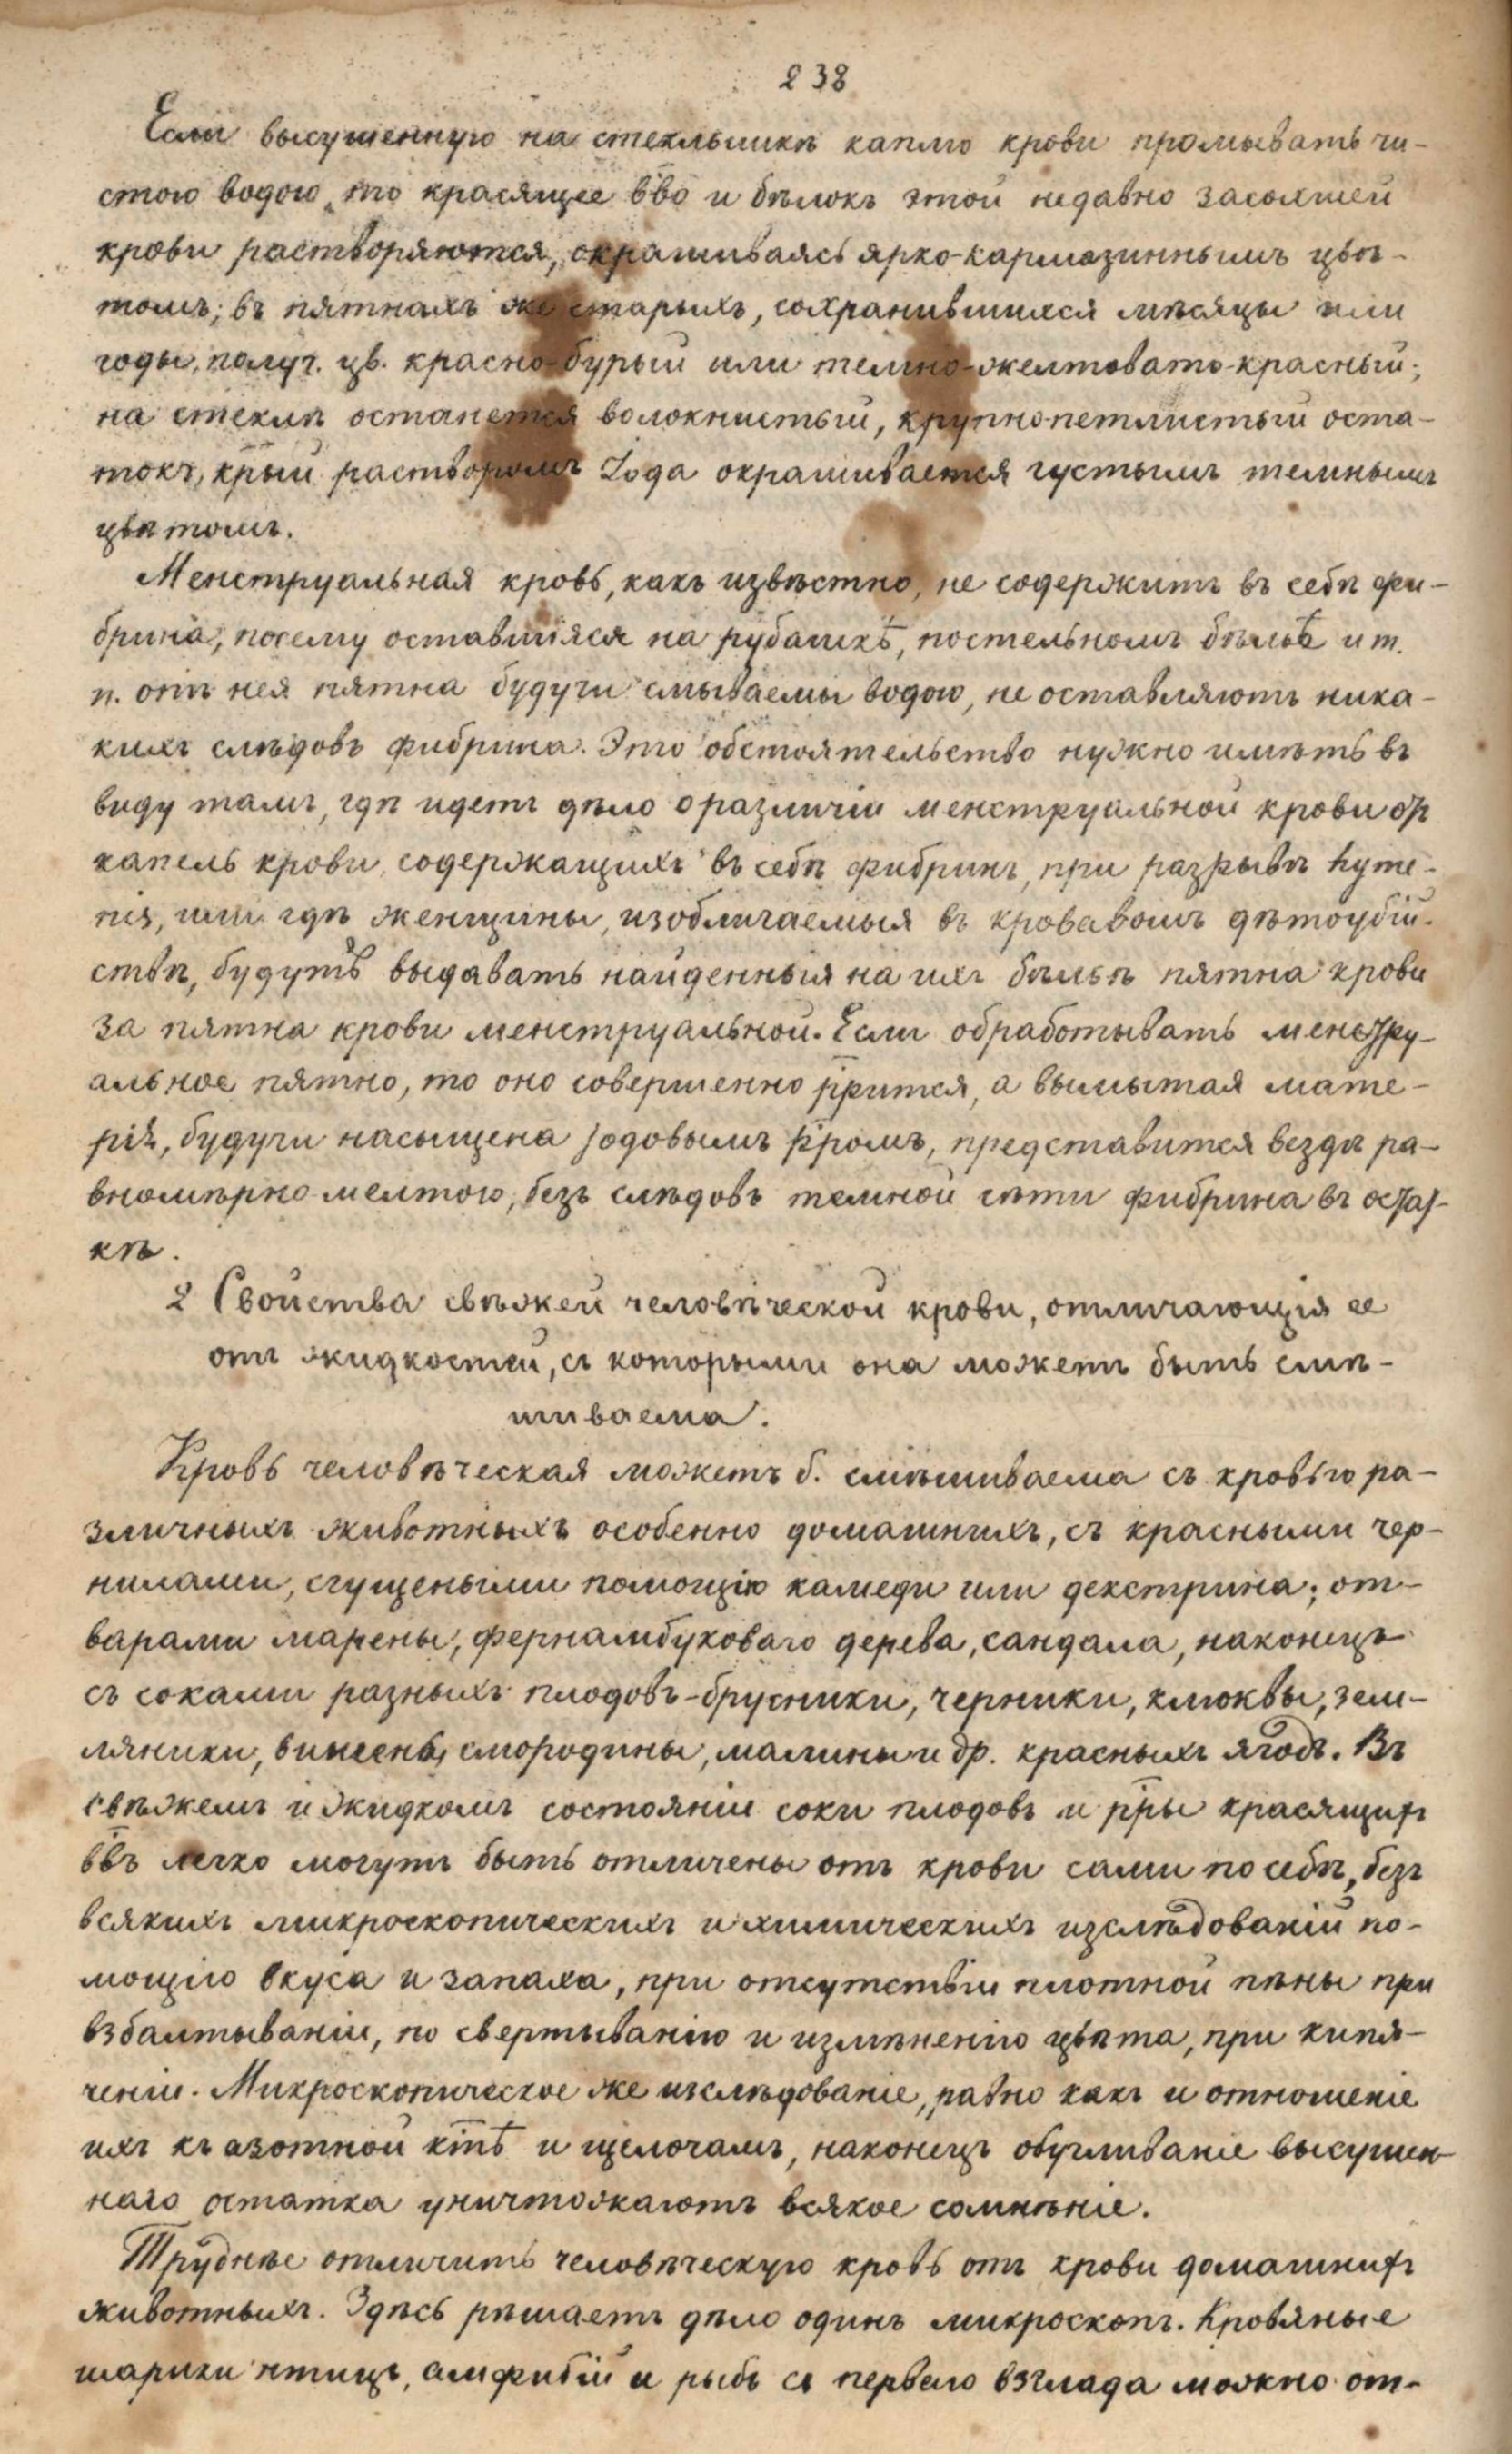 238
Если высушенную на стеклышкѣ каплю крови промывать чи-
стою водою, то красящее вво и бѣлокъ этой недавно засохшей
крови растворяются, окрашиваясь ярко-кармазиннымъ цвѣ-
томъ; въ пятнахъ же старыхъ, сохранившихся мѣсяцы или
годы, получ. цв. красно-бурый или темно-желтовато-красный;
на стеклѣ останется волокнистый, крупнопетлистый оста-
токъ, крый растворомъ Iода окрашивается густымъ темнымъ
цвѣтомъ.
Менструальная кровь, какъ извѣстно, не содержитъ въ себѣ фи-
брина, посему оставшіяся на рубашкѣ, постельномъ бѣльѣ и т.
п. отъ нея пятна будучи смываемы водою, не оставляютъ ника-
кихъ слѣдовъ фибрина. Это обстоятельство нужно имѣть въ
виду тамъ, гдѣ идетъ дѣло о различіи менструальной крови от
капель крови, содержащихъ въ себѣ фибринъ, при разрывѣ hyme-
nis, или гдѣ женщины, изобличаемыя въ кровавомъ дѣтоубій-
ствѣ, будутъ выдавать найденныя на ихъ бѣльѣ пятна крови
за пятна крови менструальной. Если обработывать менстру-
альное пятно, то оно совершенно ррится, а вымытая мате-
рія, будучи насыщена јодовымъ рромъ, представится вездѣ ра-
вномѣрно желтою, безъ слѣдовъ темной сѣти фибрина въ остат-
кѣ.
2 Свойства свѣжей человѣческой крови, отличающія ее
отъ жидкостей, съ которыми она можетъ быть смѣ-
шиваема.
Кровь человѣческая можетъ б. смѣшиваема съ кровью ра-
зличныхъ животныхъ особенно домашнихъ, съ красными чер-
нилами, сгущеными помощію камеди или декстрина; от-
варами марены, фернамбуковаго дерева, сандала, наконецъ
съ соками разныхъ плодовъ-брусники, черники, клюквы, зем-
ляники, вишень, смородины, малины и др. красныхъ ягодъ. Въ
свѣжемъ и жидкомъ состояніи соки плодовъ и рры красящих
ввъ легко могутъ быть отличены отъ крови сами по себѣ, безъ
всякихъ микроскопическихъ и химическихъ изслѣдованій по-
мощію вкуса и запаха, при отсутствіи плотной пѣны при
взбалтываніи, по свертыванію и измѣненію цвѣта, при кипя-
ченіи. Микроскопическое же изслѣдованіе, равно какъ и отношеніе
ихъ къ азотной ктѣ и щелочамъ, наконецъ обугливаніе высушен-
наго остатка уничтожаютъ всякое сомнѣніе.
Труднѣе отличить человѣческую кровь отъ крови домашних
животныхъ. Здѣсь рѣшаетъ дѣло одинъ микроскопъ. Кровяные
шарики птицъ, амфибій и рыбъ съ перваго взгляда можно от-